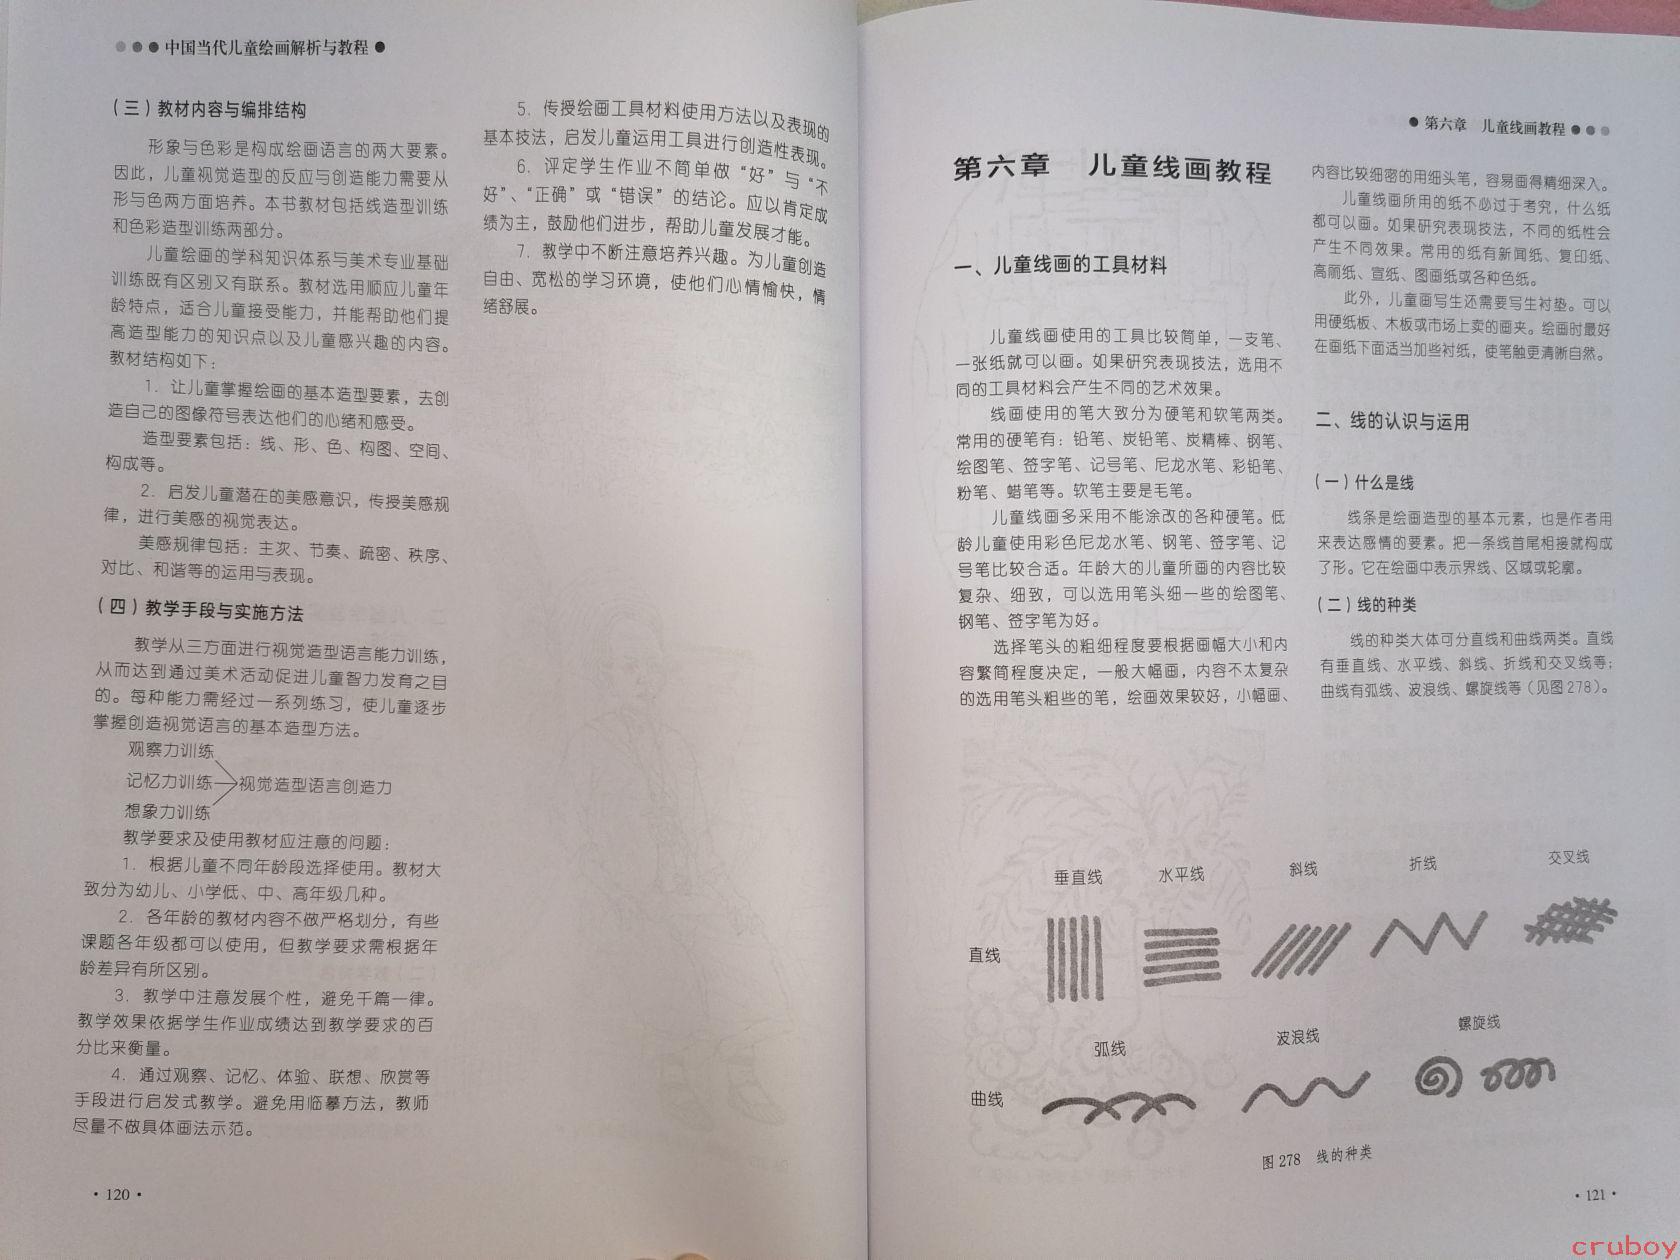 中国当代儿童绘画解析与教程
（三）教材内容与编排结构
形象与色彩是构成绘画语言的两大要素。
因此，儿童视觉造型的反应与创造能力需要从
形与色两方面培养。本书教材包括线造型训练
和色彩造型训练两部分。
儿童绘画的学科知识体系与美术专业基础
训练既有区别又有联系。教材选用顺应儿童年
龄特点，适合儿童接受能力，并能帮助他们提
高造型能力的知识点以及儿童感兴趣的内容。
教材结构如下：
1. 让儿童掌握绘画的基本造型要素，去创
造自己的图像符号表达他们的心绪和感受。
造型要素包括：线、形、色、构图、空间、
构成等。
2. 启发儿童潜在的美感意识，传授美感规
律，进行美感的视觉表达。
美感规律包括：主次、节奏、疏密、秩序、
对比、和谐等的运用与表现。
（四）教学手段与实施方法
教学从三方面进行视觉造型语言能力训练，
从而达到通过美术活动促进儿童智力发育之目
的。每种能力需经过一系列练习，使儿童逐步
掌握创造视觉语言的基本造型方法。
观察力训练
记忆力训练 视觉造型语言创造力
想象力训练
教学要求及使用教材应注意的问题：
1. 根据儿童不同年龄段选择使用。教材大
致分为幼儿、小学低、中、高年级几种。
2. 各年龄的教材内容不做严格划分，有些
课题各年级都可以使用，但教学要求需根据年
龄差异有所区别。
3. 教学中注意发展个性，避免千篇一律。
教学效果依据学生作业成绩达到教学要求的百
分比来衡量。
4. 通过观察、记忆、体验、联想、欣赏等
手段进行启发式教学。避免用临摹方法，教师
尽量不做具体画法示范。
5. 传授绘画工具材料使用方法以及表现的
基本技法，启发儿童运用工具进行创造性表现。
6. 评定学生作业不简单做“好”与“不
好”、“正确”或“错误”的结论。应以肯定成
绩为主，鼓励他们进步，帮助儿童发展才能。
7. 教学中不断注意培养兴趣。为儿童创造
自由、宽松的学习环境，使他们心情愉快，情
绪舒展。
· 120 ·
第六章 儿童线画教程
第六章 儿童线画教程
一、儿童线画的工具材料
儿童线画使用的工具比较简单，一支笔、
一张纸就可以画。如果研究表现技法，选用不
同的工具材料会产生不同的艺术效果。
线画使用的笔大致分为硬笔和软笔两类。
常用的硬笔有：铅笔、炭铅笔、炭精棒、钢笔、
绘图笔、签字笔、记号笔、尼龙水笔、彩铅笔、
粉笔、蜡笔等。软笔主要是毛笔。
儿童线画多采用不能涂改的各种硬笔。低
龄儿童使用彩色尼龙水笔、钢笔、签字笔、记
号笔比较合适。年龄大的儿童所画的内容比较
复杂、细致，可以选用笔头细一些的绘图笔、
钢笔、签字笔为好。
选择笔头的粗细程度要根据画幅大小和内
容繁简程度决定，一般大幅画，内容不太复杂
的选用笔头粗些的笔，绘画效果较好，小幅画、
内容比较细密的用细头笔，容易画得精细深入。
儿童线画所用的纸不必过于考究，什么纸
都可以画。如果研究表现技法，不同的纸性会
产生不同效果。常用的纸有新闻纸、复印纸、
高丽纸、宣纸、图画纸或各种色纸。
此外，儿童画写生还需要写生衬垫。可以
用硬纸板、木板或市场上卖的画夹。绘画时最好
在画纸下面适当加些衬纸，使笔触更清晰自然。
二、线的认识与运用
（一）什么是线
线条是绘画造型的基本元素，也是作者用
来表达感情的要素。把一条线首尾相接就构成
了形。它在绘画中表示界线、区域或轮廓。
（二）线的种类
线的种类大体可分直线和曲线两类。直线
有垂直线、水平线、斜线、折线和交叉线等；
曲线有弧线、波浪线、螺旋线等（见图278）。
垂直线 水平线 斜线 折线 交叉线
直线
弧线 波浪线 螺旋线
曲线
图278 线的种类
· 121 ·
cruboy